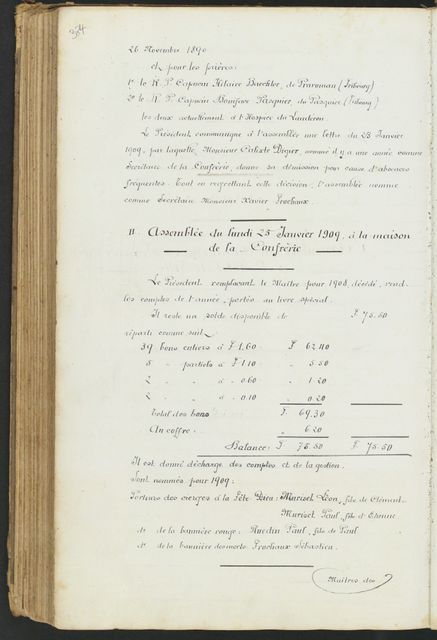 304
26 Novembre 1890
et pour les prières:
1º le R. P. Capucin Hilaire Baechler, de Praroman (Fribourg)
2º le R. P. Capucin Boniface Pasquier, du Pasquier (Fribourg)
les deux actuellement à l'Hospice du Landeron.
Le Président communique à l'assemblée une lettre du 23 Janvier
1909, par laquelle, Monsieur Calixte Dieger, nommé il y a une année comme
Secrétaire de la Confrérie, donne sa démission pour cause d'absences
fréquentes. Tout en regrettant cette décision, l'assemblée nomme
comme Secrétaire Monsieur Xavier Frochaux.
II. Assemblée du lundi 25 Janvier 1909, à la maison
de la Confrérie
Le Président remplaçant le Maître pour 1908, décédé, rend
les comptes de l'année, portés au livre spécial.
Il reste un solde disponible de F. 75.50
réparti comme suit
39 bons entiers à F 1.60 F. 62.40
5 " partiels à F 1.10 " 5.50
2 " " à " 0.60 " 1.20
2 " " à " 0.10 " 0.20
Total des bons F. 69.30
En coffre " 6.20
Balance: F 75.50 F 75.50
Il est donné décharge des comptes et de la gestion.
Sont nommés pour 1909:
Porteurs des cierges à la Fête Dieu: Muriset Léon, fils de Clément.
Muriset Paul, fils d'Etienne
dº de la bannière rouge: Ruedin Paul, fils de Paul
dº de la bannière des morts Frochaux Sébastien.
Maîtres des